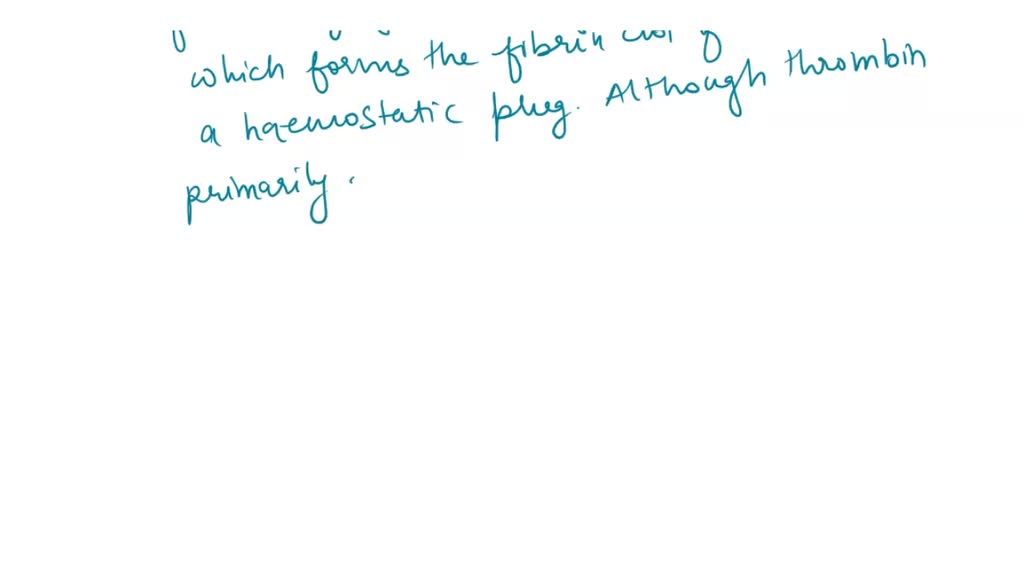 which forms the fibrin clot of
a haemostatic plug. Although thrombin
primarily